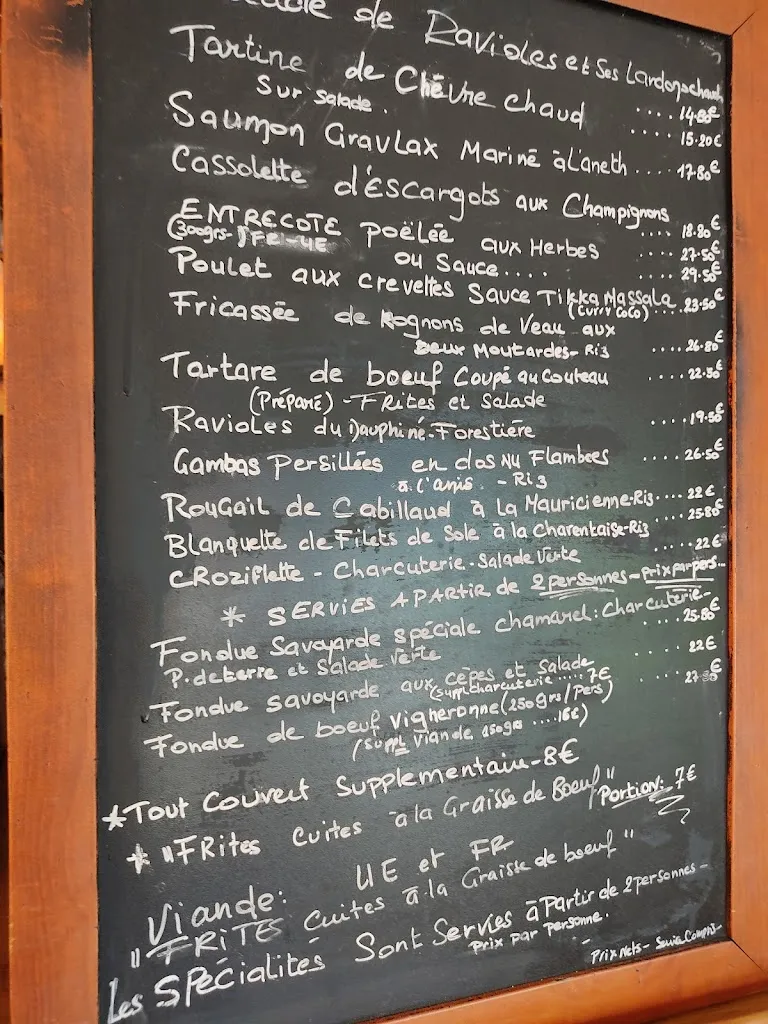 de Ravioles et Ses Lardons chauds
.... 14.80€
Tartine de Chêvre chaud
Sur Salade. .... 15.20€
Saumon Gravlax Mariné à L'aneth .... 17.80€
Cassolette d'Escargots aux Champignons
.... 18.80€
ENTRECOTE poëlée aux Herbes .... 27.50€
(300grs-) FR-UE ou Sauce.... .... 29.50€
Poulet aux crevettes Sauce Tikka Massala
(Curry Coco) ....23.50€
Fricassée de Rognons de Veau aux
Deux Moutardes- Riz .... 26.80€
Tartare de boeuf Coupé au Couteau .... 22.50€
(Préparé) - FRites et Salade
Ravioles du Dauphiné-Forestière ....19.50€
Gambas Persillées en dos Nu Flambées .... 26.50€
à l'anis. - Riz
Rougail de Cabillaud à la Mauricienne-Riz.... 22€
Blanquette de Filets de Sole à la Charentaise-Riz ....25.80€
CRoziflette - Charcuterie-Salade Verte ..... 22€
* SERVIES A PARTIR de 2 personnes - prix par pers...
Fondue Savoyarde spéciale chamarel: charcuterie-
P. de terre et Salade Verte .... 25.80€
Fondue savoyarde aux cèpes et Salade .... 22€
(suppl charcuterie ..... 7€
Fondue de boeuf Vigneronne (250grs/Pers) .....
(Suppl Viande 150grs ....16€)
*Tout Couvert Supplementaire-8€
* "FRites Cuites à la Graisse de Boeuf" Portion: 7€
Viande: UE et FR
"FRITES cuites à la Graisse de boeuf"
Les SPécialités Sont Servies à Partir de 2 personnes -
Prix par Personne.
Prix Nets- Service Compris-